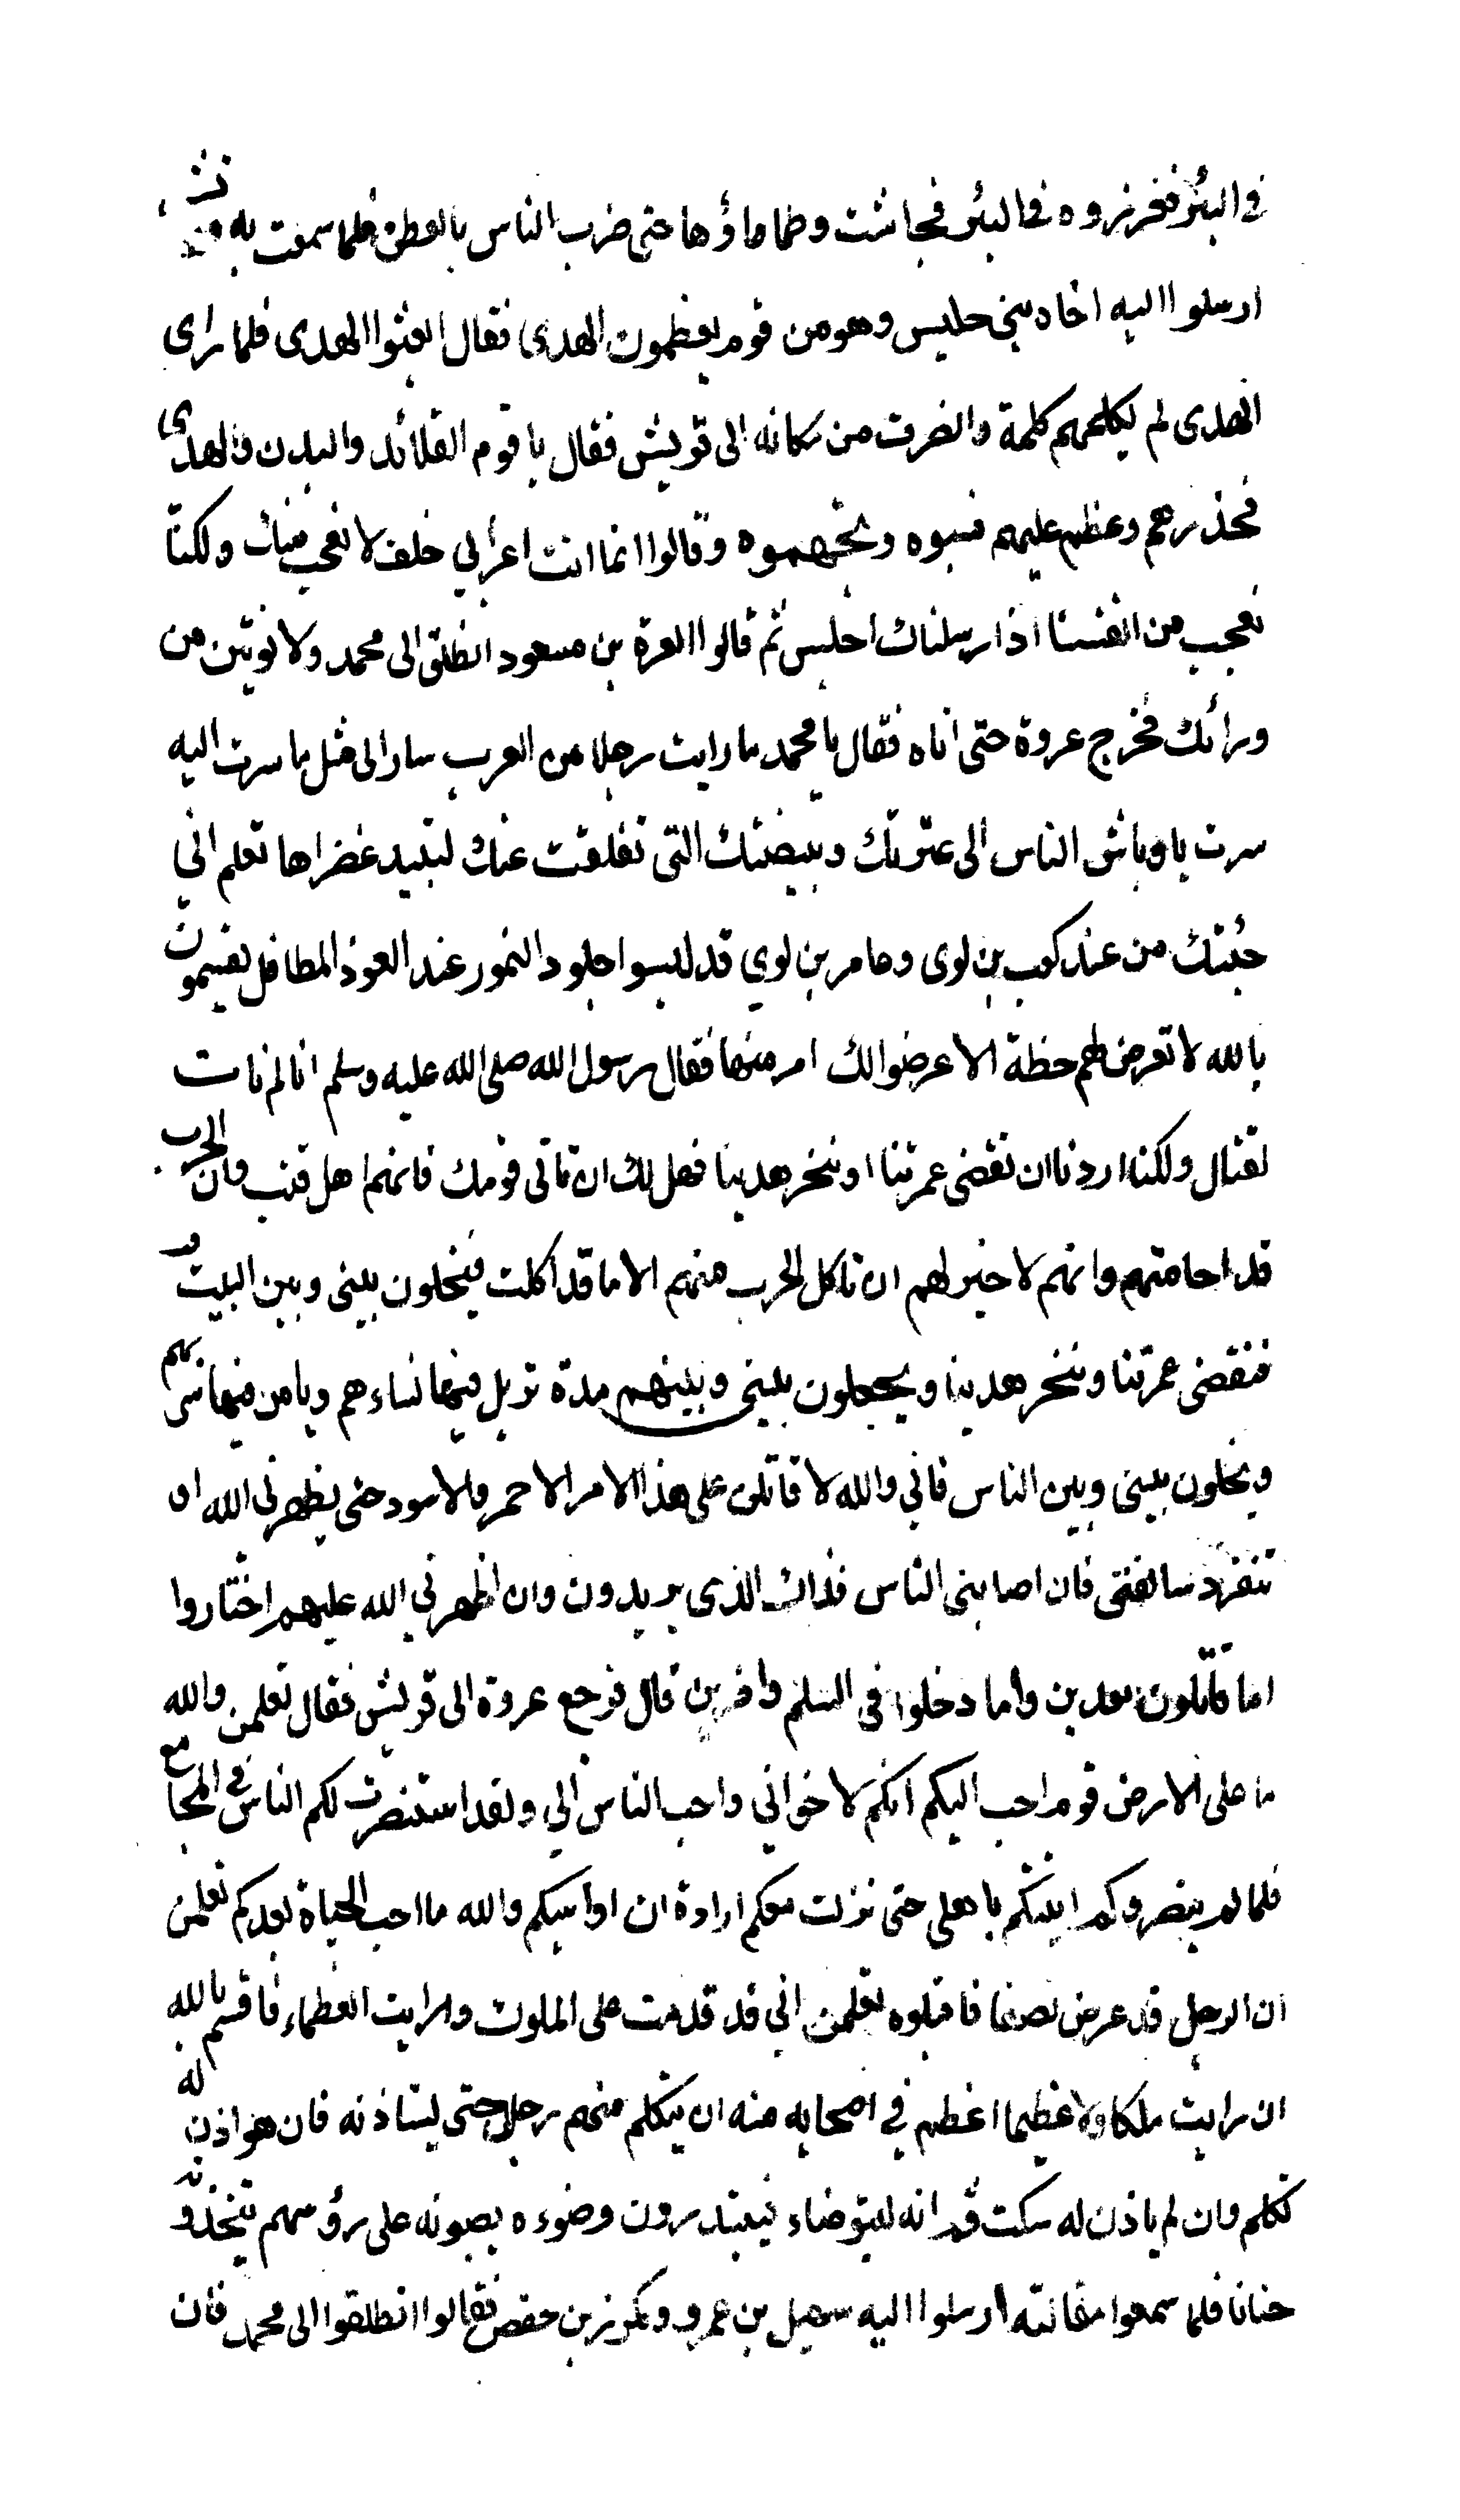 في البئر فغرزوه في البئر فجاشت وطما ماؤها حتى ضرب الناس بالعطن فلما سمعت به قريش
ارسلوا اليه اخا بني حليس وهو من قوم يعظمون الهدى فقال ابعثوا الهدى فلما راى
الهدى لم يكلمهم كلمة وانصرف من مكانه الى قريش فقال يا قوم القلائد والبدن والهدى
فحذرهم وعظم عليهم فسبوه وتجهموه وقالوا انما انت اعرابي جلف لا نعجب منك ولكنا
نعجب من انفسنا اذ ارسلناك اجلس ثم قالوا لعروة بن مسعود انطلق الى محمد ولا نؤتين من
ورائك فخرج عروة حتى اتاه فقال يا محمد ما رايت رجلا من العرب سار الى مثل ما سرت اليه
سرت باوباش الناس الى عترتك وبيضتك التى تفلقت عنك لتبيد خضراها تعلم اني
جئتك من عند كعب بن لوى وعامر بن لوي قد لبسوا جلود النمور عند العوذ المطافل يقسمون
بالله لا تعرض لهم خطة الا عرضوا لك امر منها فقال رسول الله صلى الله عليه وسلم انا لم نات
لقتال ولكنا اردنا ان نقضى عمرتنا وننحر هدينا فهل لك ان تاتى قومك فانهم اهل قتب وان الحرب
قد اخافتهم وانهم لا خير لهم ان تاكل الحرب منهم الا ما قد اكلت فيخلون بيني وبين البيت
فنقضى عمرتنا وننحر هدينا ويجعلون بيني وبينهم مدة تزيل فيها نساءهم ويامن فيها سربهم
ويخلون بيني وبين الناس فاني والله لاقاتلن على هذا الامر الاحمر والاسود حتى يظهرني الله او
تنفرد سالفتى فان اصابنى الناس فذاك الذى يريدون وان اظهرني الله عليهم اختاروا
اما قاتلون معدين واما دخلوا في السلم وافرين قال فرجع عروة الى قريش فقال تعلمن والله
ما على الارض قوم احب اليكم انكم لاخواني واحب الناس الي ولقد استنصرت لكم الناس في المجامع
فلما لم ينصروكم اتيتكم باهلي حتى نزلت معكم ارادة ان اواسيكم والله ما احب الحياة بعدكم تعلمن
ان الرجل قد عرض نصفا فاقبلوه تعلمن اني قد قدمت على الملوك ورايت العظماء فاقسم بالله
ان رايت ملكا ولا عظيما اعظم في اصحابه منه ان يتكلم منهم رجل حتى يستاذنه فان هو اذن له
تكلم وان لم ياذن له سكت ثم انه ليتوضاء فيبتدرون وضوءه يصبونه على رؤسهم يتخذونه
حنانا فلما سمعوا مقالته ارسلوا اليه سهيل بن عمرو ومكرز بن حفص فقالوا انطلقوا الى محمد فان